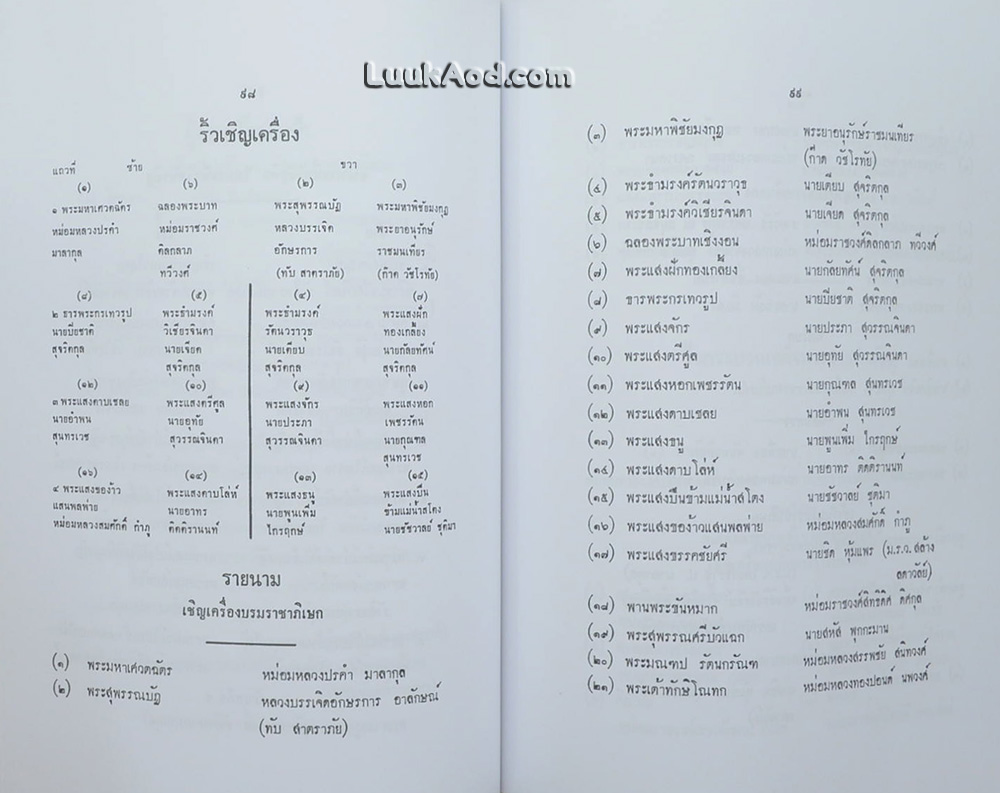 LuukAod.com
๙๘
ริ้วเชิญเครื่อง
แถวที่ ซ้าย ขวา
(๑) (๖) (๒) (๓)
๑ พระมหาเศวตฉัตร ฉลองพระบาท พระสุพรรณบัฏ พระมหาพิชัยมงกุฎ
หม่อมหลวงปรคำ หม่อมราชวงศ์ หลวงบรรเจิด พระยาอนุรักษ์
มาลากุล ดิลกลาภ อักษรการ ราชมนเทียร
ทวีวงศ์ (ทับ สาตราภัย) (ก๊าด วัชโรทัย)
(๘) (๕) (๔) (๗)
๒ ธารพระกรเทวรูป พระธำมรงค์ พระธำมรงค์ พระแสงฝัก
นายปิยชาติ วิเชียรจินดา รัตนวราวุธ ทองเกลี้ยง
สุจริตกุล นายเจียด นายเดียบ นายกัลยทัศน์
สุจริตกุล สุจริตกุล สุจริตกุล
(๑๒) (๑๐) (๙) (๑๑)
๓ พระแสงดาบเชลย พระแสงตรีศูล พระแสงจักร พระแสงหอก
นายอำพน นายอุทัย นายประภา เพชรรัตน
สุนทรเวช สุวรรณจินดา สุวรรณจินดา นายกุณฑล
สุนทรเวช
(๑๖) (๑๔) (๑๓) (๑๕)
๔ พระแสงของ้าว พระแสงดาบโล่ห์ พระแสงธนู พระแสงปืน
แสนพลพ่าย นายอาทร นายพูนเพิ่ม ข้ามแม่น้ำสโตง
หม่อมหลวงสมศักดิ์ กำภู ติตติรานนท์ ไกรฤกษ์ นายชัชวาลย์ ชุติมา
รายนาม
เชิญเครื่องบรมราชาภิเษก
(๑) พระมหาเศวตฉัตร หม่อมหลวงปรคำ มาลากุล
(๒) พระสุพรรณบัฏ หลวงบรรเจิดอักษรการ อาลักษณ์
(ทับ สาตราภัย)
๙๙
(๓) พระมหาพิชัยมงกุฎ พระยาอนุรักษ์ราชมนเทียร
(ก๊าด วัชโรทัย)
(๔) พระธำมรงค์รัตนวราวุธ นายเดียบ สุจริตกุล
(๕) พระธำมรงค์วิเชียรจินดา นายเจียด สุจริตกุล
(๖) ฉลองพระบาทเชิงงอน หม่อมราชวงศ์ดิลกลาภ ทวีวงศ์
(๗) พระแสงฝักทองเกลี้ยง นายกัลยทัศน์ สุจริตกุล
(๘) ธารพระกรเทวรูป นายปิยชาติ สุจริตกุล
(๙) พระแสงจักร นายประภา สุวรรณจินดา
(๑๐) พระแสงตรีศูล นายอุทัย สุวรรณจินดา
(๑๑) พระแสงหอกเพชรรัตน นายกุณฑล สุนทรเวช
(๑๒) พระแสงดาบเชลย นายอำพน สุนทรเวช
(๑๓) พระแสงธนู นายพูนเพิ่ม ไกรฤกษ์
(๑๔) พระแสงดาบโล่ห์ นายอาทร ติตติรานนท์
(๑๕) พระแสงปืนข้ามแม่น้ำสโตง นายชัชวาลย์ ชุติมา
(๑๖) พระแสงของ้าวแสนพลพ่าย หม่อมหลวงสมศักดิ์ กำภู
(๑๗) พระแสงขรรคชัยศรี นายชิด หุ้มแพร (ม.ร.ว.สล้าง
ลดาวัลย์)
(๑๘) พานพระขันหมาก หม่อมราชวงศ์สิทธิดิศ ดิศกุล
(๑๙) พระสุพรรณศรีบัวแฉก นายสหัส พุกกะมาน
(๒๐) พระมณฑป รัตนกรัณฑ หม่อมหลวงสรรพชัย สนิทวงศ์
(๒๑) พระเต้าทักษิโณทก หม่อมหลวงทองปอนด์ นพวงศ์